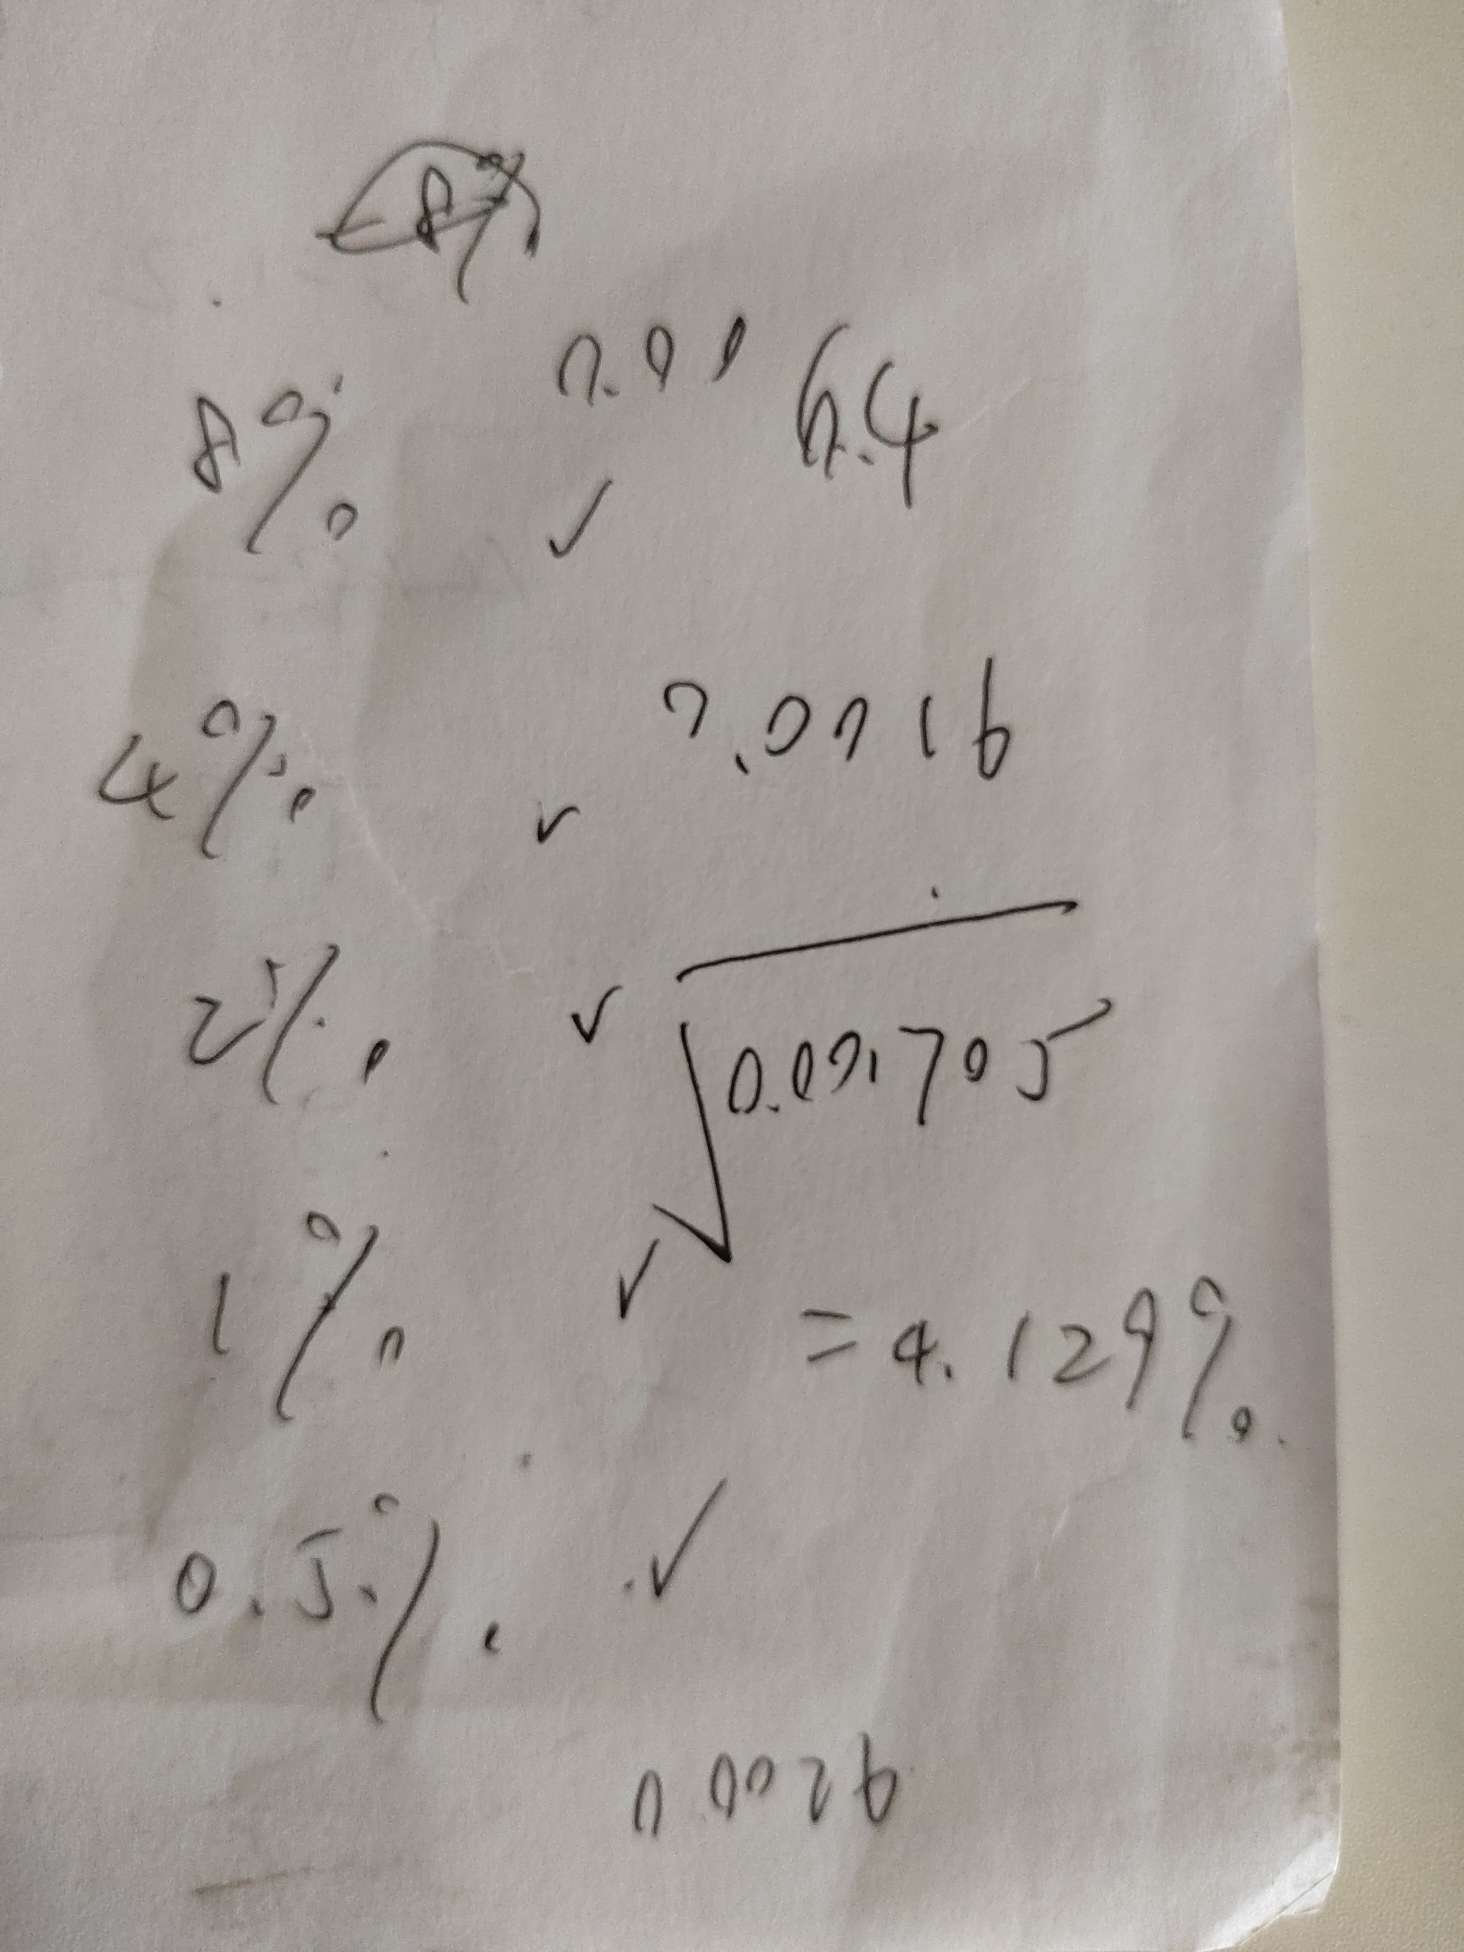 8%
0.00 6.4
8% ✓
0.0016
4% ✓
2% ✓
√0.001705
1% ✓
= 4.129%
0.5% ✓
0.0026